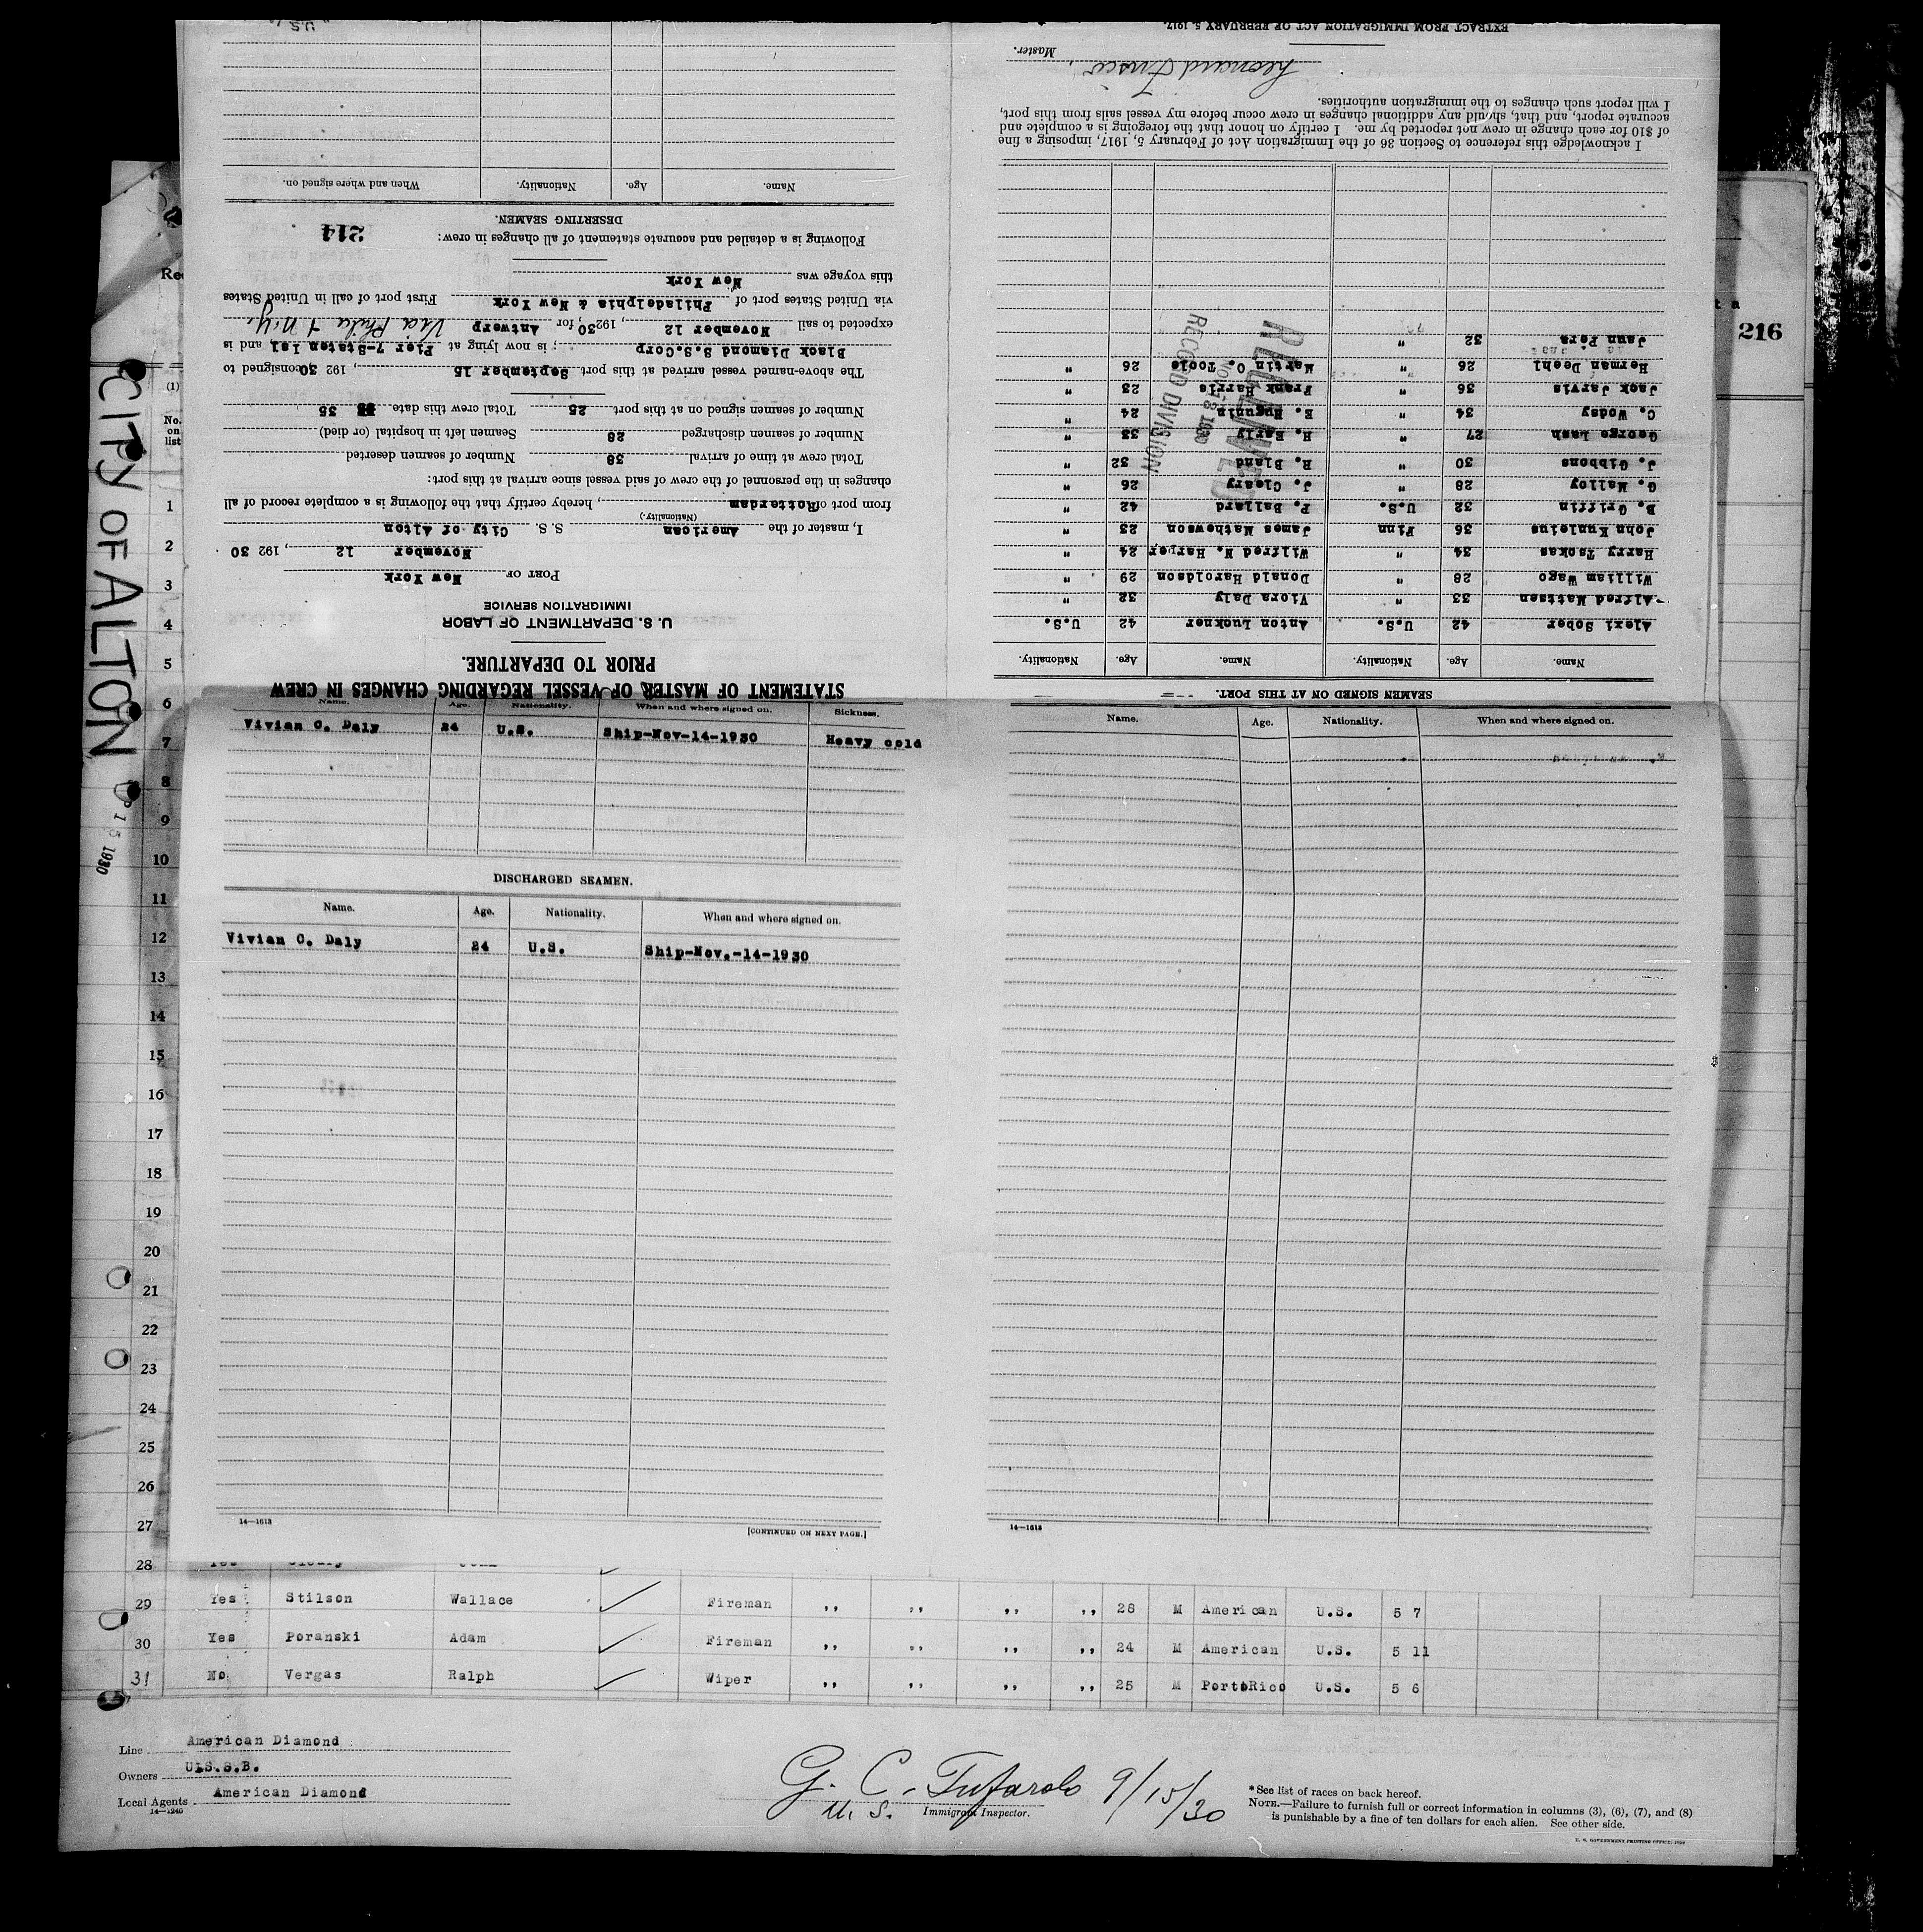 STATEMENT OF MASTER OF VESSEL REGARDING CHANGES IN CREW
PRIOR TO DEPARTURE.
U. S. DEPARTMENT OF LABOR
IMMIGRATION SERVICE
PORT OF New York
November 12, 192 30
I, master of the American S. S. City of Alton
(Nationality.)
from port of Rotterdam, hereby certify that the following is a complete record of all
changes in the personnel of the crew of said vessel since arrival at this port:
Total crew at time of arrival 38 Number of seamen deserted
Number of seamen discharged 28 Seamen left in hospital (or died)
Number of seamen signed on at this port 25 Total crew this date 35
The above-named vessel arrived at this port September 15, 192 30 consigned to
Black Diamond S.S.Corp.; is now lying at Pier 7-Staten Isl, and is
expected to sail November 12, 192 30 for Antwerp Via Phila & N.Y.
via United States port of Philadelphia & New York First port of call in United States
this voyage was New York
Following is a detailed and accurate statement of all changes in crew: 214
DESERTING SEAMEN.
Name. Age. Nationality. When and where signed on.
U.S.
SEAMEN SIGNED ON AT THIS PORT.
Name. Age. Nationality. Name. Age. Nationality.
Alexi Sober 42 U.S. Anton Luckner 42 U.S.
Alfred Mattsen 33 " Viora Daly 32 "
William Wago 28 " Donald Haroldson 29 "
Harry Tsokas 34 " Wilfred N. Harper 24 "
John Kunleius 36 Finn James Mathewson 23 "
B. Griffin 32 U.S. P. Ballard 42 "
G. Malloy 28 " J. Cleary 26 "
J. Gibbons 30 " R. Bland 32 "
George Lash 27 " H. Early 33 "
C. Wodsy 34 " E. Hugunin 24 "
Jack Jarvis 36 " Frank Harris 23 "
Herman Deehl 26 " Martin O. Toole 26 "
Jaun Pera 32 "
RECEIVED
1930
RECORD DIVISION
I acknowledge this reference to Section 36 of the Immigration Act of February 5, 1917, imposing a fine
of $10 for each change in crew not reported by me. I certify on honor that the foregoing is a complete and
accurate report, and that, should any additional changes in crew occur before my vessel sails from this port,
I will report such changes to the immigration authorities.
Leonard, Master.
EXTRACT FROM IMMIGRATION ACT OF FEBRUARY 5, 1917.
216
CITY OF ALTON
15 1930
(1)
No. on list
Name. Age. Nationality. When and where signed on. Sickness.
Vivian C. Daly 24 U.S. Ship-Nov-14-1930 Heavy cold
DISCHARGED SEAMEN.
Name. Age. Nationality. When and where signed on.
Vivian C. Daly 24 U.S. Ship-Nov.-14-1930
14—1613
[CONTINUED ON NEXT PAGE.]
Name. Age. Nationality. When and where signed on.
14—1613
1
2
3
4
5
6
7
8
9
10
11
12
13
14
15
16
17
18
19
20
21
22
23
24
25
26
27
28
29 Yes Stilson Wallace Fireman ,, ,, ,, ,, 28 M American U.S. 5 7
30 Yes Poranski Adam Fireman ,, ,, ,, ,, 24 M American U.S. 5 11
31 No Vergas Ralph Wiper ,, ,, ,, ,, 25 M PortoRico U.S. 5 6
Line American Diamond
Owners U.S.S.B.
Local Agents American Diamond
14—1240
G. C. Tufarolo 9/15/30
U. S.
Immigrant Inspector.
*See list of races on back hereof.
NOTE.—Failure to furnish full or correct information in columns (3), (6), (7), and (8)
is punishable by a fine of ten dollars for each alien. See other side.
U. S. GOVERNMENT PRINTING OFFICE